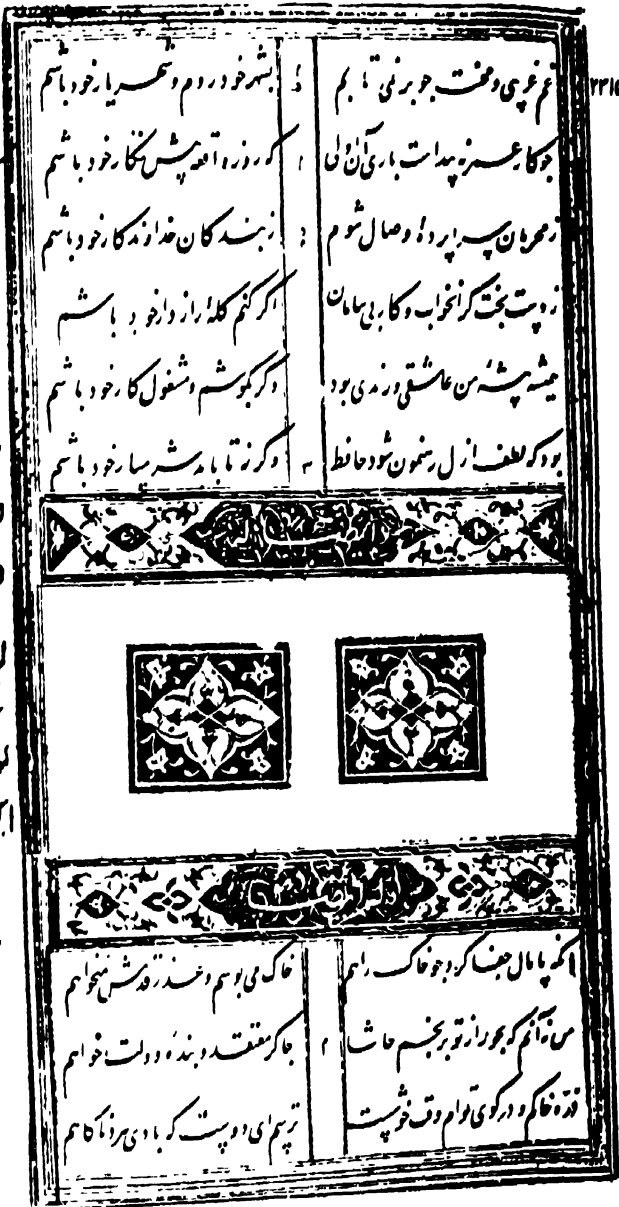 ۲۳۱۵
غم غریبی و محنت چو برنمی تابم بشهر خود روم و شهریار خود باشم
چو کار عمر نه پیداست باری آن اولی که روز واقعه پیش نگار خود باشم
ز محرمان سراپردهٔ وصال شوم ز بندکان خداوندکار خود باشم
ز دست بخت کران خواب و کار بی سامان اکر کنم کلهٔ رازدار خود باشم
همیشه پیشهٔ من عاشقی و رندی بود دکر بکوشم و مشغول کار خود باشم
بود که لطف ازل رهنمون شود حافظ وکر نه تا بابد شرمسار خود باشم
آنکه پامال جفا کرد چو خاک راهم خاک می بوسم و عذر قدمش میخواهم
من نه آنم که بجور از تو بنالم حاشا چاکر معتقد و بندهٔ دولت خواهم
ذرهٔ خاکم و در کوی توام وقت خوشست ترسم ای دوست که بادی ببرد ناکاهم